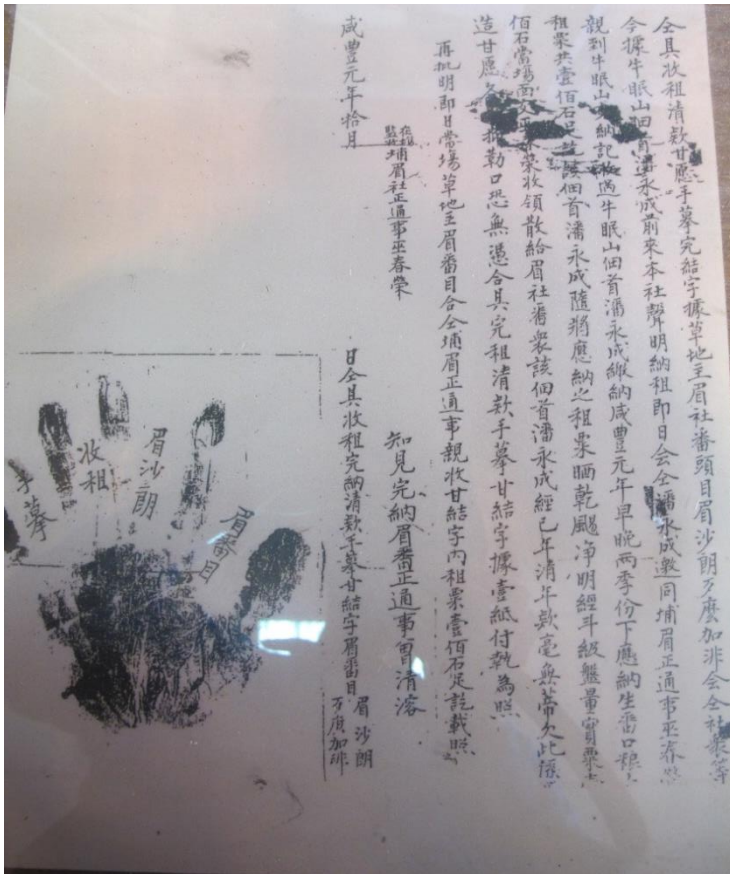 仝具收租清款甘愿手摹完結字據草地主眉社番頭目眉沙朗歹麼加非会仝社衆等
今據牛眠山佃首潘永成前來本社聲明納租即日会仝潘永成邀同埔眉正通事巫春榮
親到牛眠山 納記 牛眠山佃首潘永成繳納咸豐元年早晚兩季份下應納生番口粮
租粟共壹佰石足訖該佃首潘永成隨將應納之租粟晒乾颺淨明經斗級盤量實粟
佰石當場面 榮收領散給眉社番衆該佃首潘永成經已年清年款毫無蒂欠此係
造甘愿 勒口恐無憑合具完租清款手摹甘結字據壹紙付執為照
再批明即日當場草地主眉番目合仝埔眉正通事親收甘結字內租粟壹佰石足訖載照
在場監收埔眉社正通事巫春榮
知見完納眉番正通事曹清溶
咸豐元年拾月 日仝具收租完納清款手摹甘結字眉番目眉沙朗 歹麼加非
眉番目
眉沙朗
收租
手摹